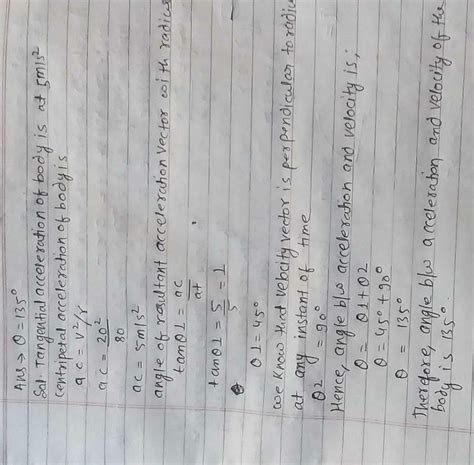 Ans → θ = 135°
Sol. Tangential acceleration of body is at 5m/s²
Centripetal acceleration of body is
ac = v²/r
ac = 20²
80
ac = 5m/s²
angle of resultant acceleration vector with radius
tanθ1 = ac
at
tanθ1 = 5 = 1
5
θ1 = 45°
we know that velocity vector is perpendicular to radiu
at any instant of time
θ2 = 90°
Hence, angle b/w acceleration and velocity is;
θ = θ1 + θ2
θ = 45° + 90°
θ = 135°
Therefore, angle b/w acceleration and velocity of the
body is 135°.